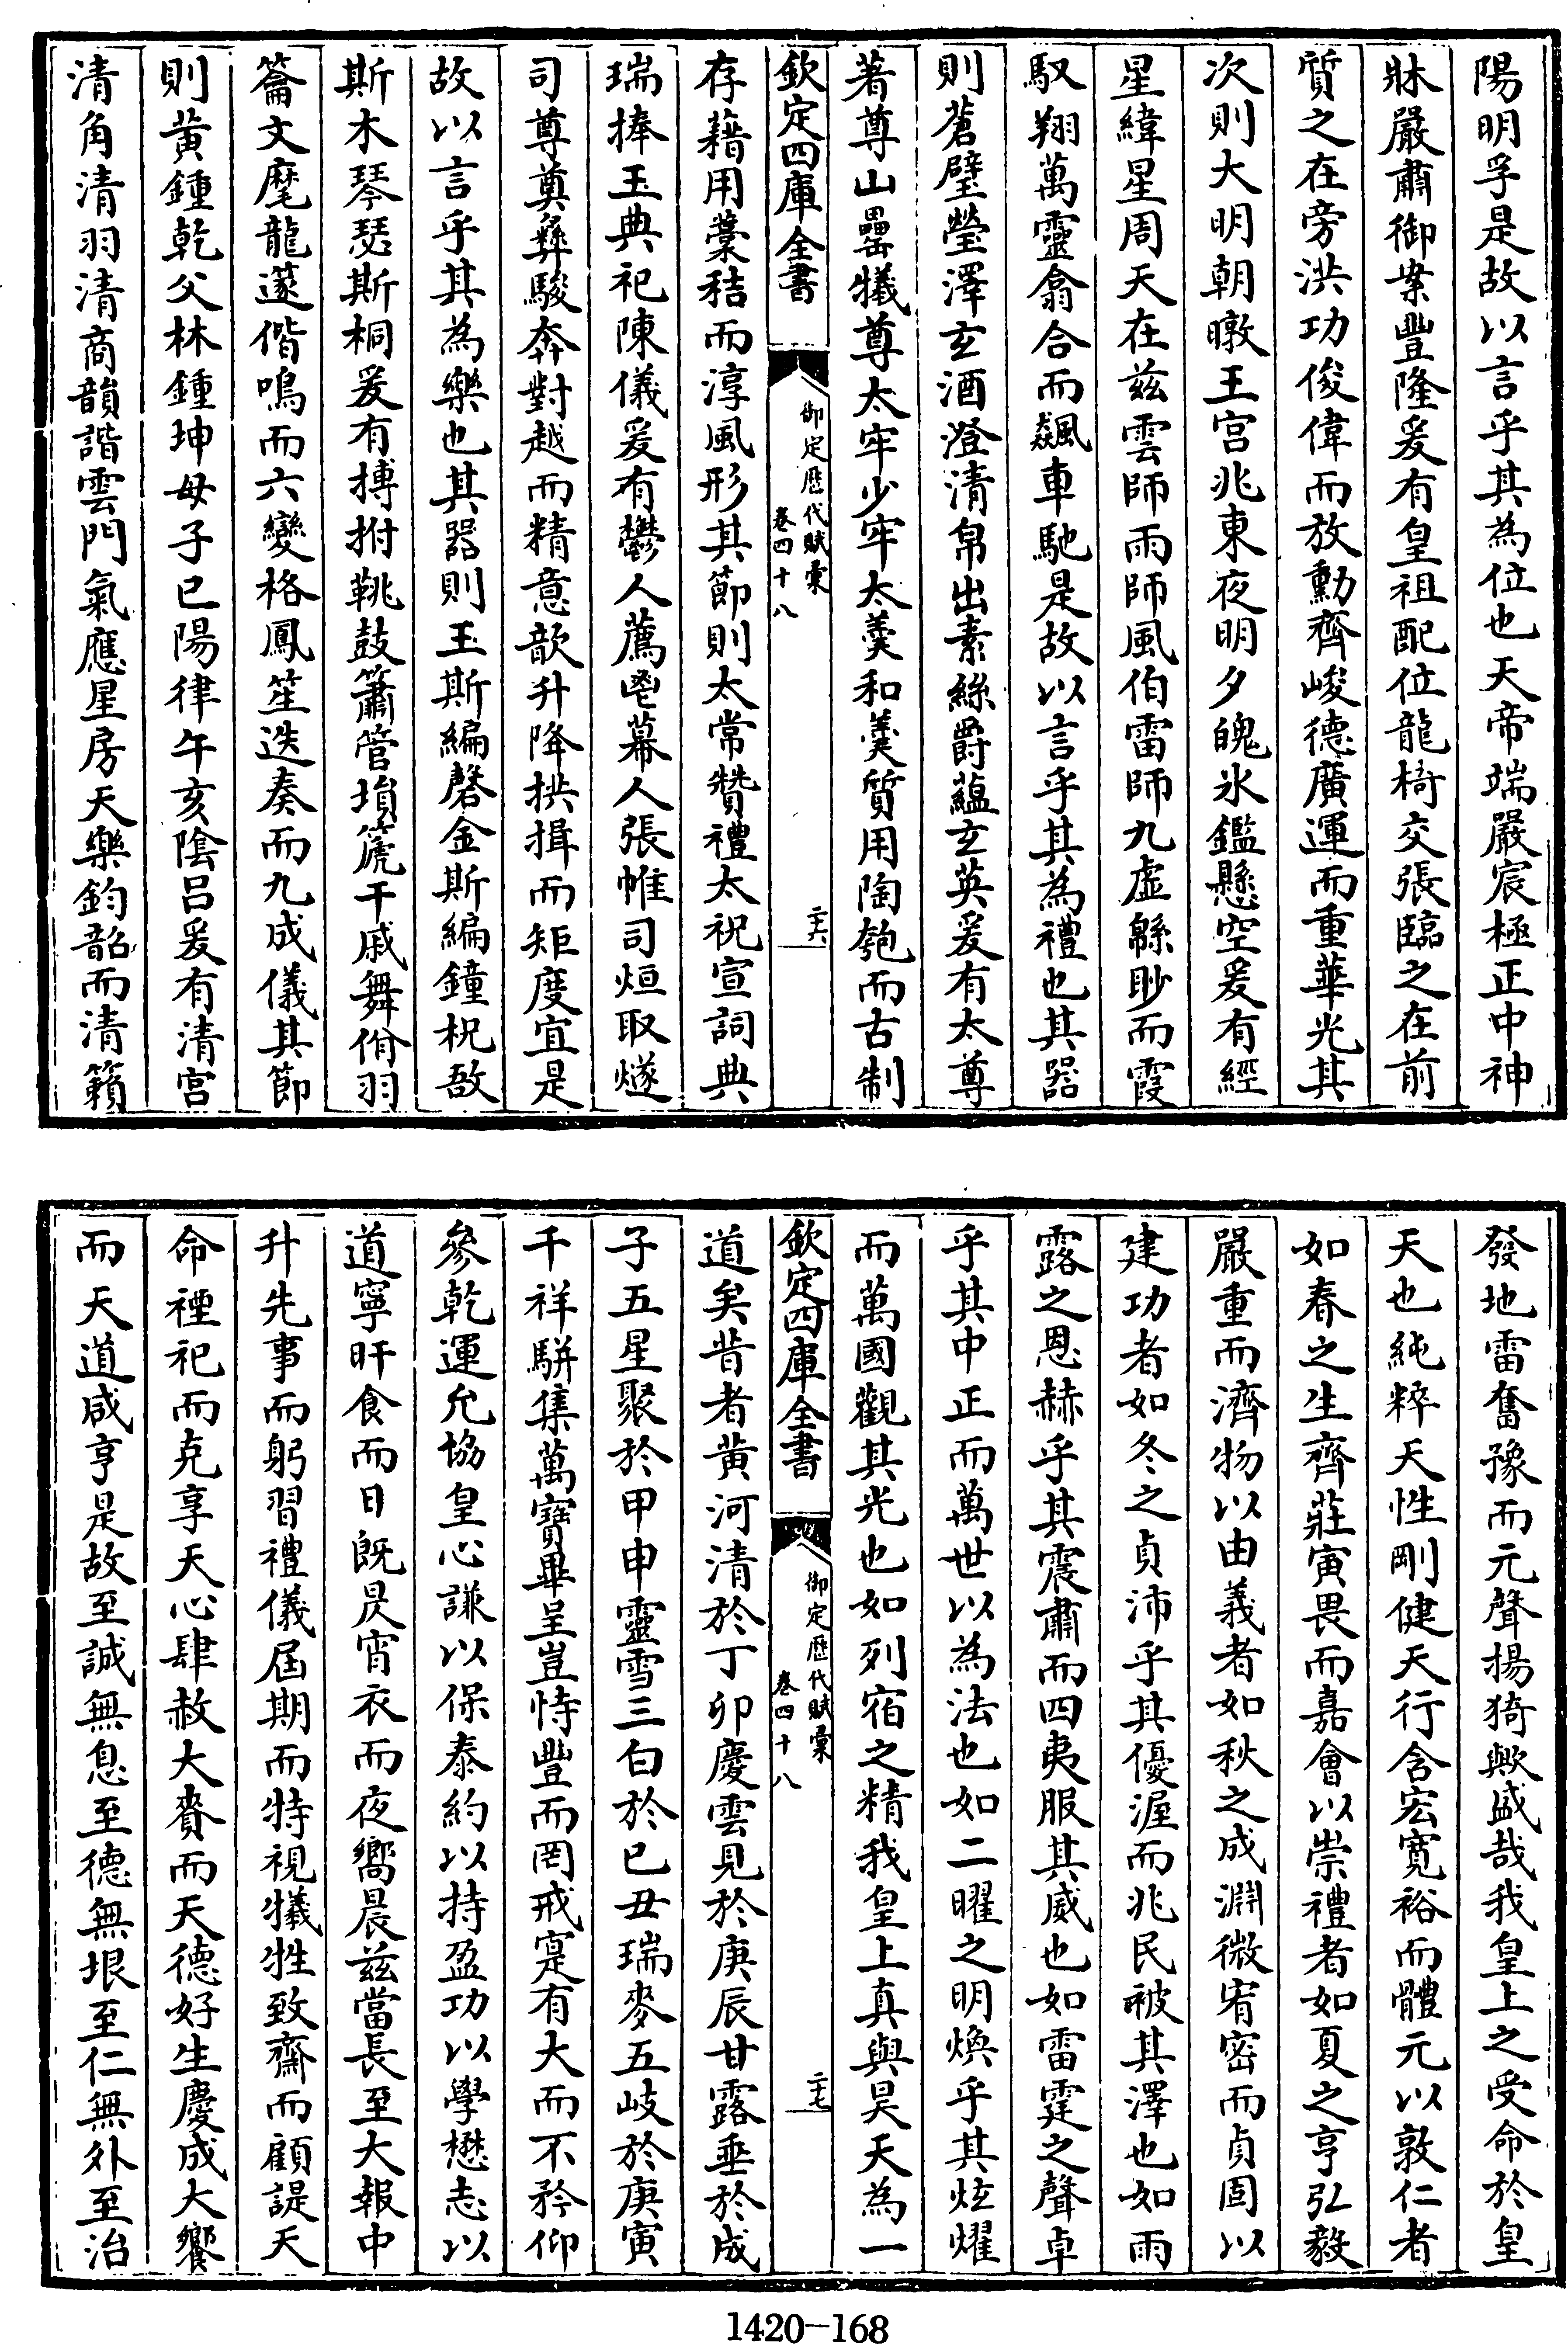 陽明孚是故以言乎其為位也天帝端嚴宸極正中神
牀嚴肅御案豐隆爰有皇祖配位龍椅交張臨之在前
質之在旁洪功俊偉而放勳齊峻德廣運而重華光其
次則大明朝暾王宮兆東夜明夕魄氷鑑懸空爰有經
星緯星周天在兹雲師雨師風伯雷師九虛緜眇而霞
馭翔萬靈翕合而飆車馳是故以言乎其為禮也其器
則蒼璧瑩澤玄酒澄清帛出素絲爵蘊玄英爰有太尊
著尊山罍犧尊太牢少牢太羹和羹質用陶匏而古制
欽定四庫全書
御定歴代賦彙
卷四十八
二十六
存藉用藁秸而淳風形其節則太常贊禮太祝宣詞典
瑞捧玉典祀陳儀爰有鬱人薦鬯幕人張帷司烜取燧
司尊奠彝駿奔對越而精意歆升降拱揖而矩度宜是
故以言乎其為樂也其器則玉斯編磬金斯編鐘柷敔
斯木琴瑟斯桐爰有搏拊鞉鼓簫管塤箎干戚舞佾羽
籥文麾龍篴偕鳴而六變格鳳笙迭奏而九成儀其節
則黃鍾乾父林鍾坤母子巳陽律午亥陰呂爰有清宮
清角清羽清商韻諧雲門氣應星房天樂鈞韶而清籟
發地雷奮豫而元聲揚猗歟盛哉我皇上之受命於皇
天也純粹天性剛健天行含宏寛裕而體元以敦仁者
如春之生齊莊寅畏而嘉會以崇禮者如夏之亨弘毅
嚴重而濟物以由義者如秋之成淵微宥密而貞固以
建功者如冬之貞沛乎其優渥而兆民被其澤也如雨
露之恩赫乎其震肅而四夷服其威也如雷霆之聲卓
乎其中正而萬世以為法也如二曜之明煥乎其炫燿
而萬國觀其光也如列宿之精我皇上真與昊天為一
欽定四庫全書
御定歴代賦彙
卷四十八
二十七
道矣昔者黃河清於丁卯慶雲見於庚辰甘露垂於成
子五星聚於甲申靈雪三白於已丑瑞麥五岐於庚寅
千祥駢集萬寶畢呈豈恃豐而罔戒寔有大而不矜仰
參乾運允協皇心謙以保泰約以持盈功以學懋志以
道寧旰食而日旣昃宵衣而夜嚮晨兹當長至大報中
升先事而躬習禮儀屆期而特視犧牲致齋而顧諟天
命禋祀而克享天心肆赦大賚而天德好生慶成大饗
而天道咸亨是故至誠無息至德無垠至仁無外至治
1420-168